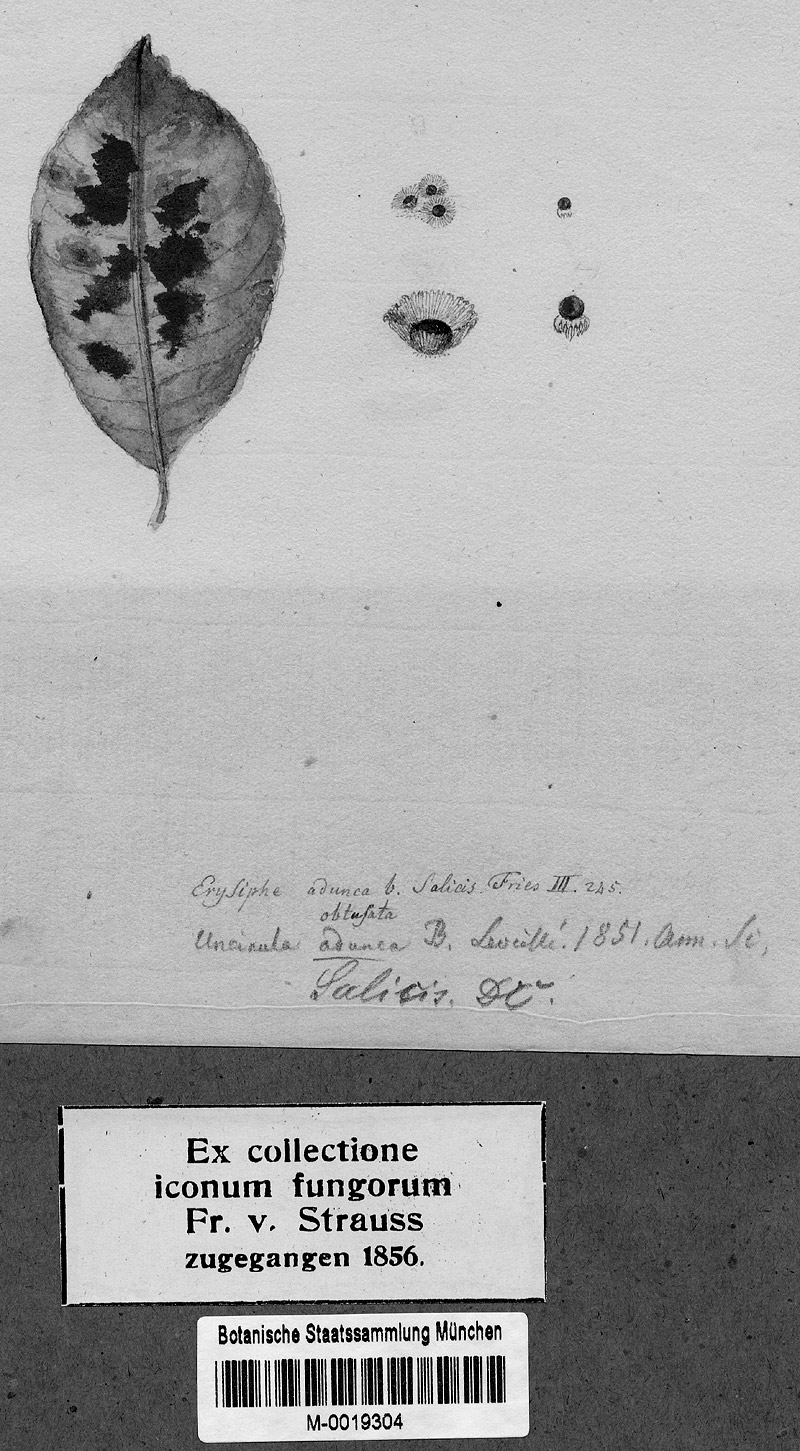 Erysiphe adunca b. Salicis Fries III. 245.
obtusata
Uncinula adunca B. Leveillé. 1851. Ann. Sc,
Salicis. DC.
Ex collectione
iconum fungorum
Fr. v. Strauss
zugegangen 1856.
Botanische Staatssammlung München
M-0019304